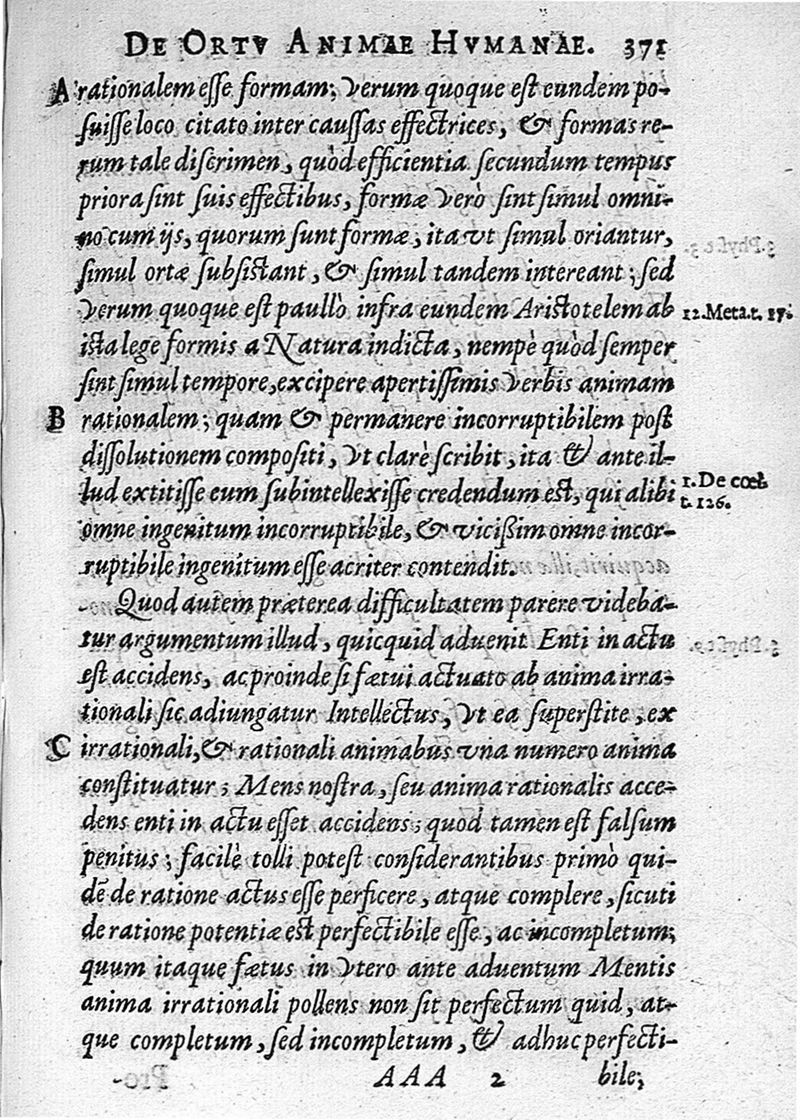 DE ORTV ANIMAE HVMANAE. 371
A rationalem esse formam; verum quoque est eundem po-
suisse loco citato inter caussas effectrices, & formas re-
rum tale discrimen, quòd efficientia secundum tempus
priora sint suis effectibus, formæ verò sint simul omni-
no cum ijs, quorum sunt formæ, ita vt simul oriantur,
simul ortæ subsistant, & simul tandem intereant; sed
verum quoque est paullò infra eundem Aristotelem ab
12.Meta.t. 17.
ista lege formis a Natura indicta, nempè quòd semper
sint simul tempore, excipere apertissimis verbis animam
B rationalem; quam & permanere incorruptibilem post
dissolutionem compositi, vt clarè scribit, ita & ante il-
lud extitisse eum subintellexisse credendum est, qui alibi
1. De cœl.
t. 126.
omne ingenitum incorruptibile, & vicißim omne incor-
ruptibile ingenitum esse acriter contendit.
Quod autem præterea difficultatem parere videba-
tur argumentum illud, quicquid aduenit Enti in actu
est accidens, ac proinde si fætui actuato ab anima irra-
tionali sic adiungatur Intellectus, vt ea superstite, ex
C irrationali, & rationali animabus vna numero anima
constituatur; Mens nostra, seu anima rationalis acce-
dens enti in actu esset accidens; quod tamen est falsum
penitus; facilè tolli potest considerantibus primò qui-
dẽ de ratione actus esse perficere, atque complere, sicuti
de ratione potentiæ est perfectibile esse, ac incompletum;
quum itaque fætus in vtero ante aduentum Mentis
anima irrationali pollens non sit perfectum quid, at-
que completum, sed incompletum, & adhuc perfecti-
AAA 2 bile;